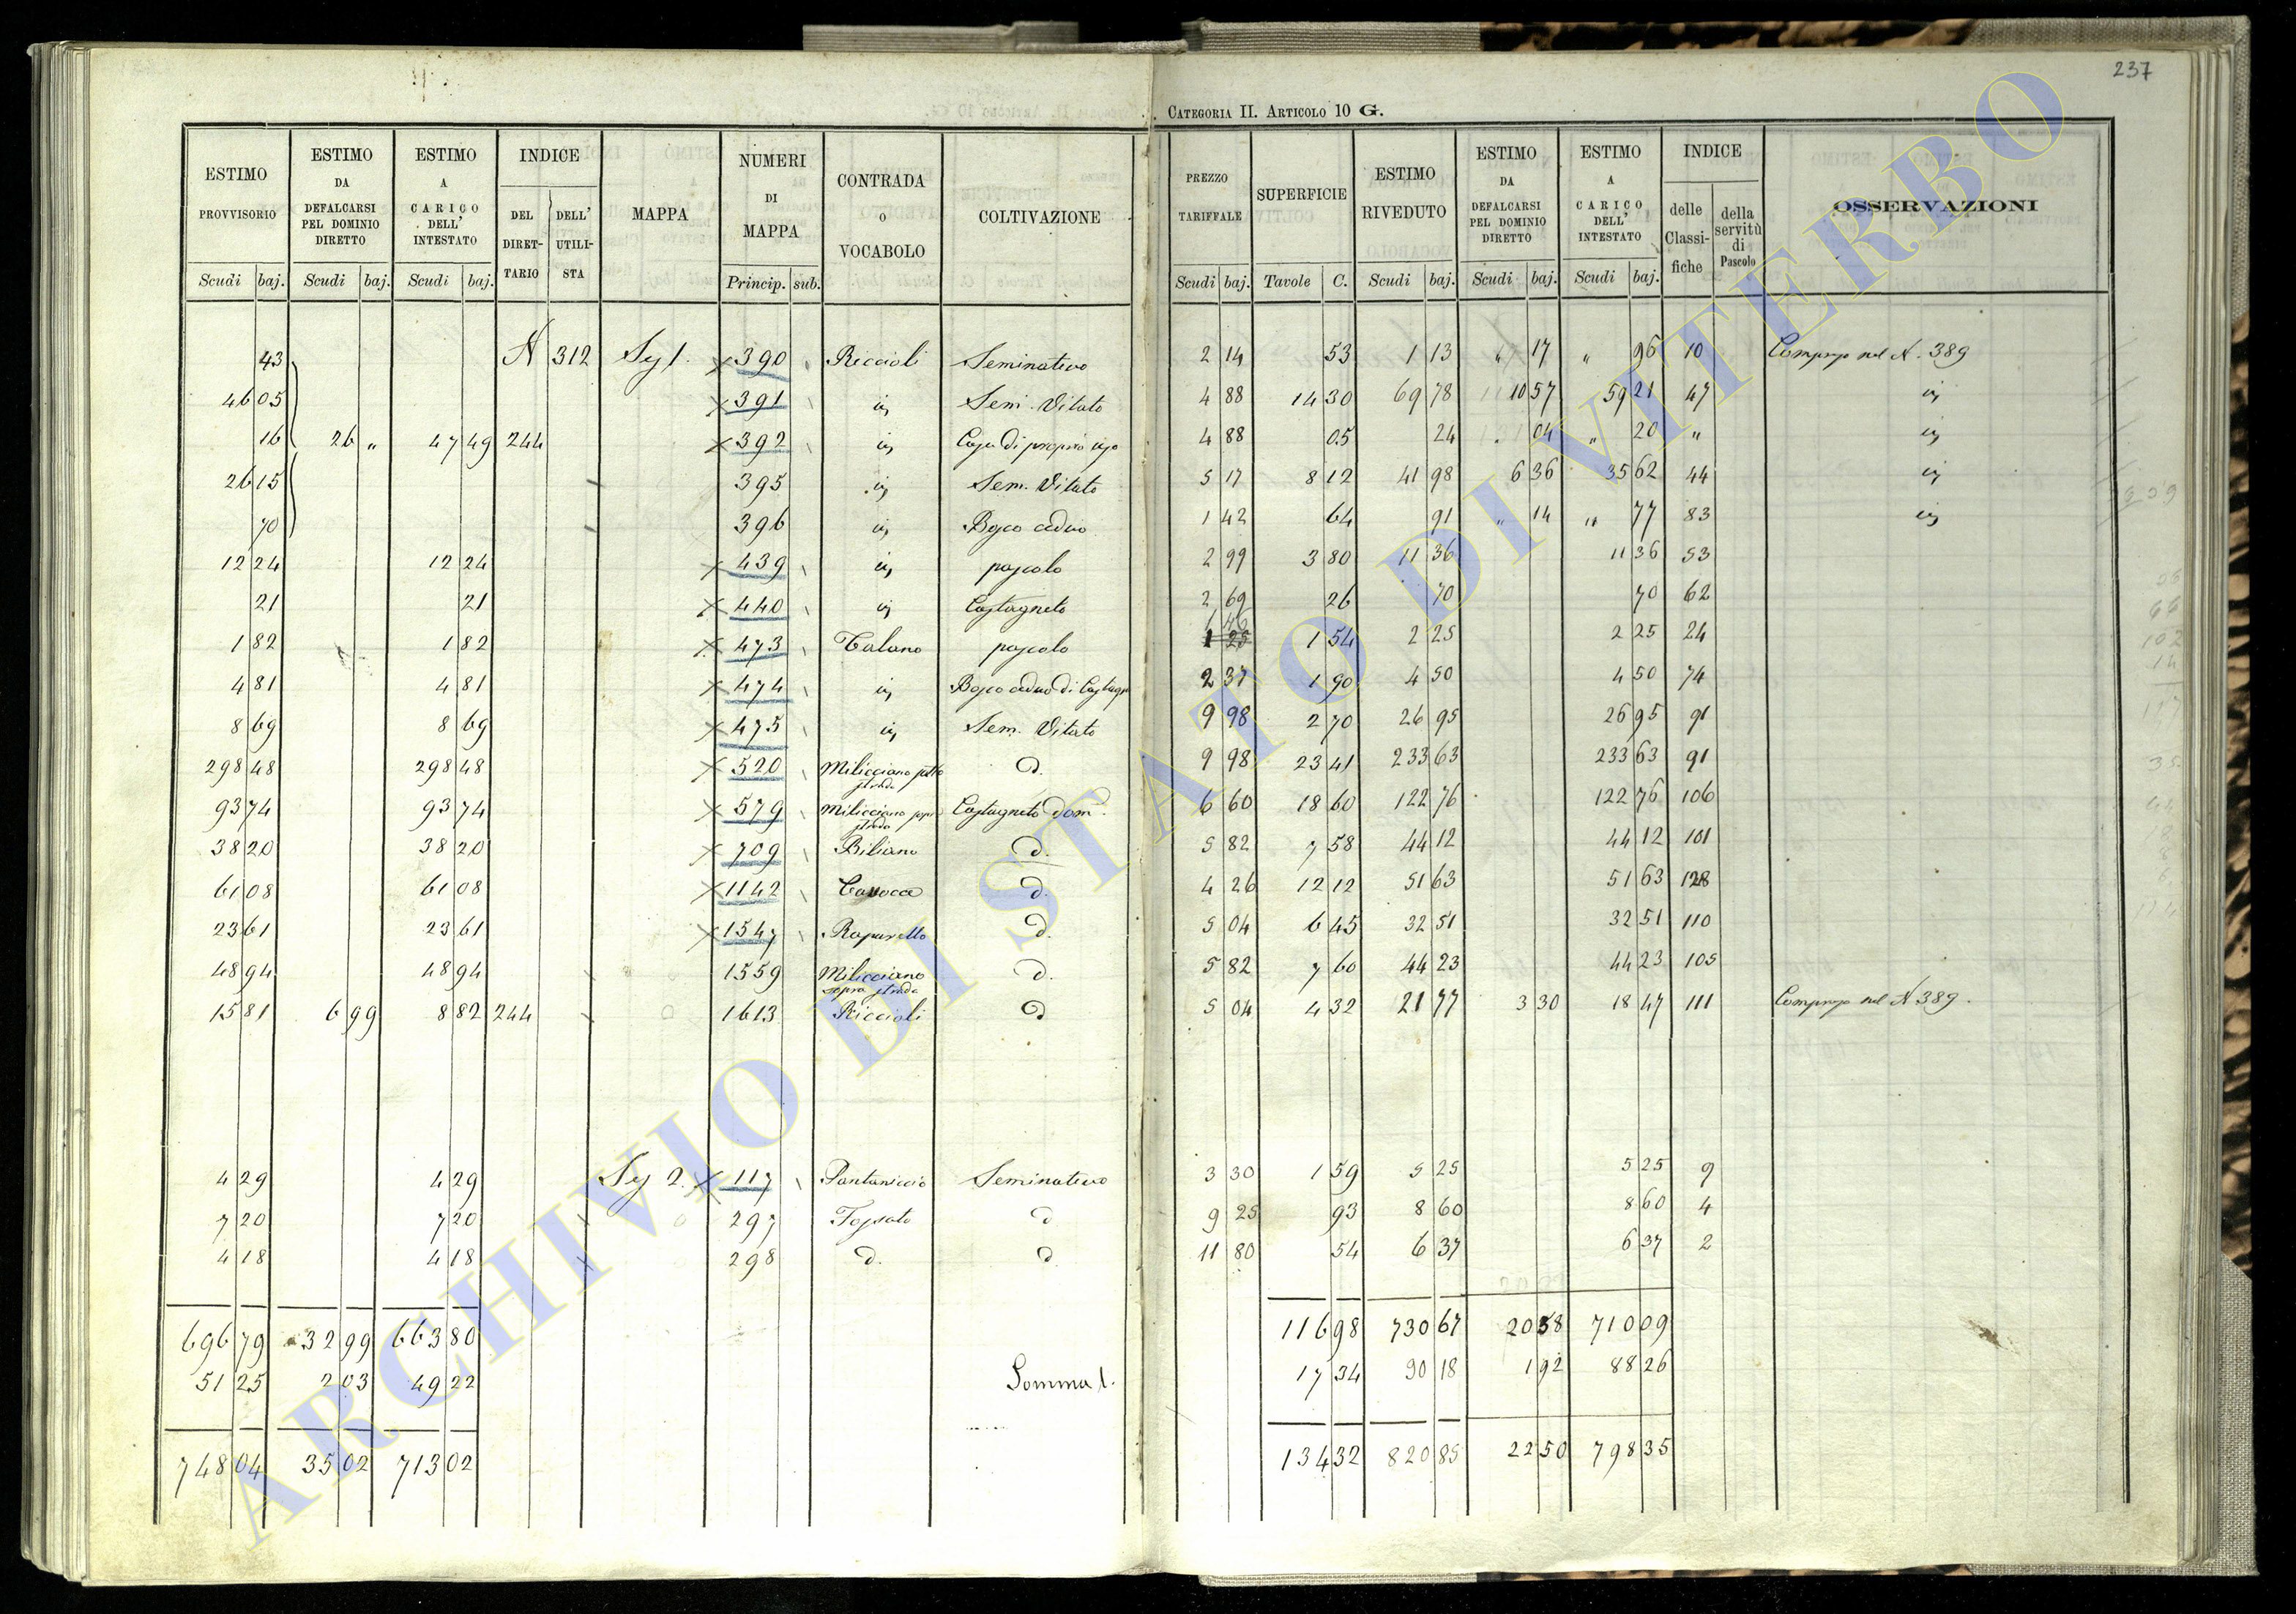 237
CATEGORIA II. ARTICOLO 10 G.
ESTIMO PROVVISORIO | ESTIMO DA DEFALCARSI PEL DOMINIO DIRETTO | ESTIMO A CARICO DELL' INTESTATO | INDICE DEL DIRETTARIO | DELL' UTILISTA | MAPPA | NUMERI DI MAPPA | CONTRADA O VOCABOLO | COLTIVAZIONE | PREZZO TARIFFALE | SUPERFICIE | ESTIMO RIVEDUTO | ESTIMO DA DEFALCARSI PEL DOMINIO DIRETTO | ESTIMO A CARICO DELL' INTESTATO | INDICE delle Classifiche | della servitù di Pascolo | OSSERVAZIONI
Scudi baj. | Scudi baj. | Scudi baj. | Princip. sub. | Scudi baj. | Tavole C. | Scudi baj. | Scudi baj. | Scudi baj.
43 | N 312 | Sez 1. | 390 | Riccioli | Seminativo | 2 14 | 53 | 1 13 | " 17 | " 96 | 10 | Compreso nel N. 389
46 05 | 391 | id | Sem. Vitato | 4 88 | 14 30 | 69 78 | 10 57 | 59 21 | 47 | id
16 | 26 " | 47 49 | 244 | 392 | id | Casa di proprio uso | 4 88 | 05 | 24 | 04 | " 20 | " | id
26 15 | 395 | id | Sem. Vitato | 5 17 | 8 12 | 41 98 | 6 36 | 35 62 | 44 | id
70 | 396 | id | Bosco ceduo | 1 42 | 64 | 91 | " 14 | " 77 | 83 | id
12 24 | 12 24 | 439 | id | pascolo | 2 99 | 3 80 | 11 36 | 11 36 | 53
21 | 21 | 440 | id | Castagneto | 2 69 | 26 | 70 | 70 | 62
1 82 | 1 82 | 473 | Talano | pascolo | 1 46 | 1 25 | 1 54 | 2 25 | 2 25 | 24
4 81 | 4 81 | 474 | id | Bosco ceduo di Castagno | 2 37 | 1 90 | 4 50 | 4 50 | 74
8 69 | 8 69 | 475 | id | Sem. Vitato | 9 98 | 2 70 | 26 95 | 26 95 | 91
298 48 | 298 48 | 520 | Milicciano sotto strada | d. | 9 98 | 23 41 | 233 63 | 233 63 | 91
93 74 | 93 74 | 579 | Milicciano sopra strada | Castagneto dom. | 6 60 | 18 60 | 122 76 | 122 76 | 106
38 20 | 38 20 | 709 | Biliano | d. | 5 82 | 7 58 | 44 12 | 44 12 | 101
61 08 | 61 08 | 1142 | d. | 4 26 | 12 12 | 51 63 | 51 63 | 128
23 61 | 23 61 | 1547 | d. | 5 04 | 6 45 | 32 51 | 32 51 | 110
48 94 | 48 94 | 1559 | Milicciano sopra strada | d. | 5 82 | 7 60 | 44 23 | 44 23 | 105
15 81 | 6 99 | 8 82 | 244 | 1613 | Riccioli | d | 5 04 | 4 32 | 21 77 | 3 30 | 18 47 | 111 | Compreso nel N 389.
4 29 | 4 29 | Sez 2. | 117 | Pantaniccio | Seminativo | 3 30 | 1 59 | 5 25 | 5 25 | 9
7 20 | 7 20 | 297 | Fossato | d | 9 25 | 93 | 8 60 | 8 60 | 4
4 18 | 4 18 | 298 | d. | d | 11 80 | 54 | 6 37 | 6 37 | 2
696 79 | 32 99 | 663 80 | 116 98 | 730 67 | 20 58 | 710 09
51 25 | 2 03 | 49 22 | Somma 1. | 17 34 | 90 18 | 1 92 | 88 26
748 04 | 35 02 | 713 02 | 134 32 | 820 85 | 22 50 | 798 35
ARCHIVIO DI STATO DI VITERBO